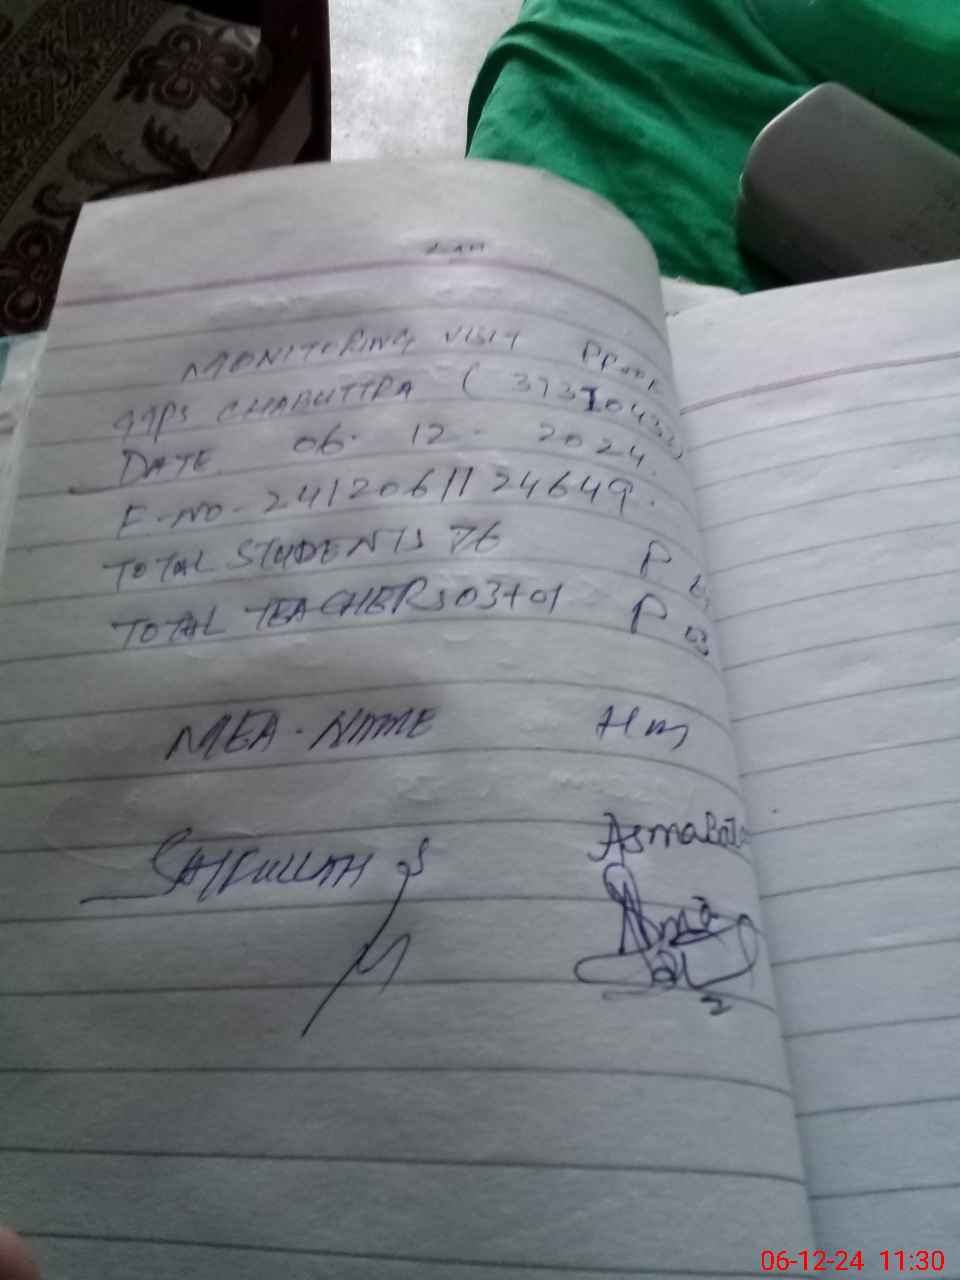 MONITORING VISIT PROOF
GGPS CHABUTTRA (
DATE. 06. 12. 2024.
F. NO. 2412061124649.
TOTAL STUDENTS 76 P
TOTAL TEACHERS 03+01 P 03
MEA. NAME Hm
SAIFULLAH
06-12-24 11:30